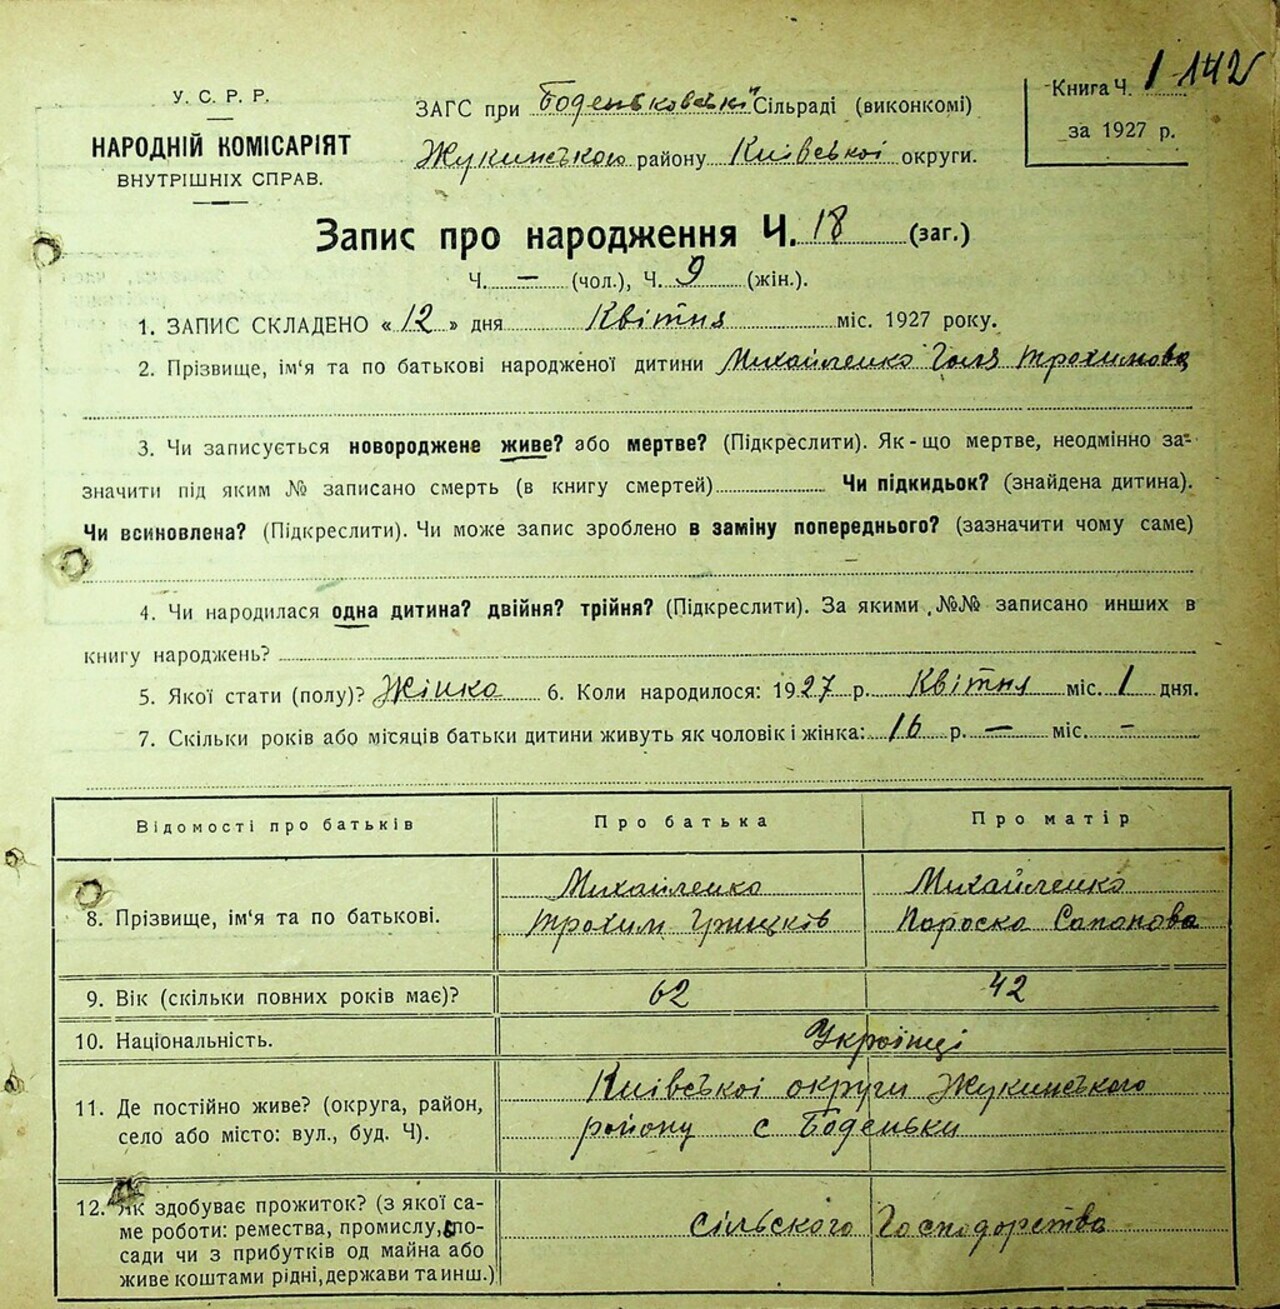 У. С. Р. Р.
НАРОДНІЙ КОМІСАРІЯТ
ВНУТРІШНІХ СПРАВ.
ЗАГС при Боденьковській Сільраді (виконкомі)
Жукинського району Київської округи.
Книга Ч. 1 142
за 1927 р.
Запис про народження Ч. 18 (заг.)
Ч. — (чол.), Ч. 9 (жін.).
1. ЗАПИС СКЛАДЕНО «12» дня Квітня міс. 1927 року.
2. Прізвище, ім'я та по батькові народженої дитини Михайленко Галя Трохимова
3. Чи записується новороджене живе? або мертве? (Підкреслити). Як-що мертве, неодмінно за-
значити під яким № записано смерть (в книгу смертей) Чи підкидьок? (знайдена дитина).
Чи всиновлена? (Підкреслити). Чи може запис зроблено в заміну попереднього? (зазначити чому саме)
—
4. Чи народилася одна дитина? двійня? трійня? (Підкреслити). За якими №№ записано инших в
книгу народжень?
5. Якої стати (полу)? Жінка 6. Коли народилося: 1927 р. Квітня міс. 1 дня.
7. Скільки років або місяців батьки дитини живуть як чоловік і жінка: 16 р. — міс. —
Відомості про батьків Про батька Про матір
8. Прізвище, ім'я та по батькові.
Михайленко Михайленко
Трохим Грицків Пороска
9. Вік (скільки повних років має)? 62 42
10. Національність. Українці
11. Де постійно живе? (округа, район,
село або місто: вул., буд. Ч).
Київської округи Жукинського
району с Боденьки
12. Як здобуває прожиток? (з якої са-
ме роботи: ремества, промислу, по-
сади чи з прибутків од майна або
живе коштами рідні, держави та инш.)
Сільского Господарства